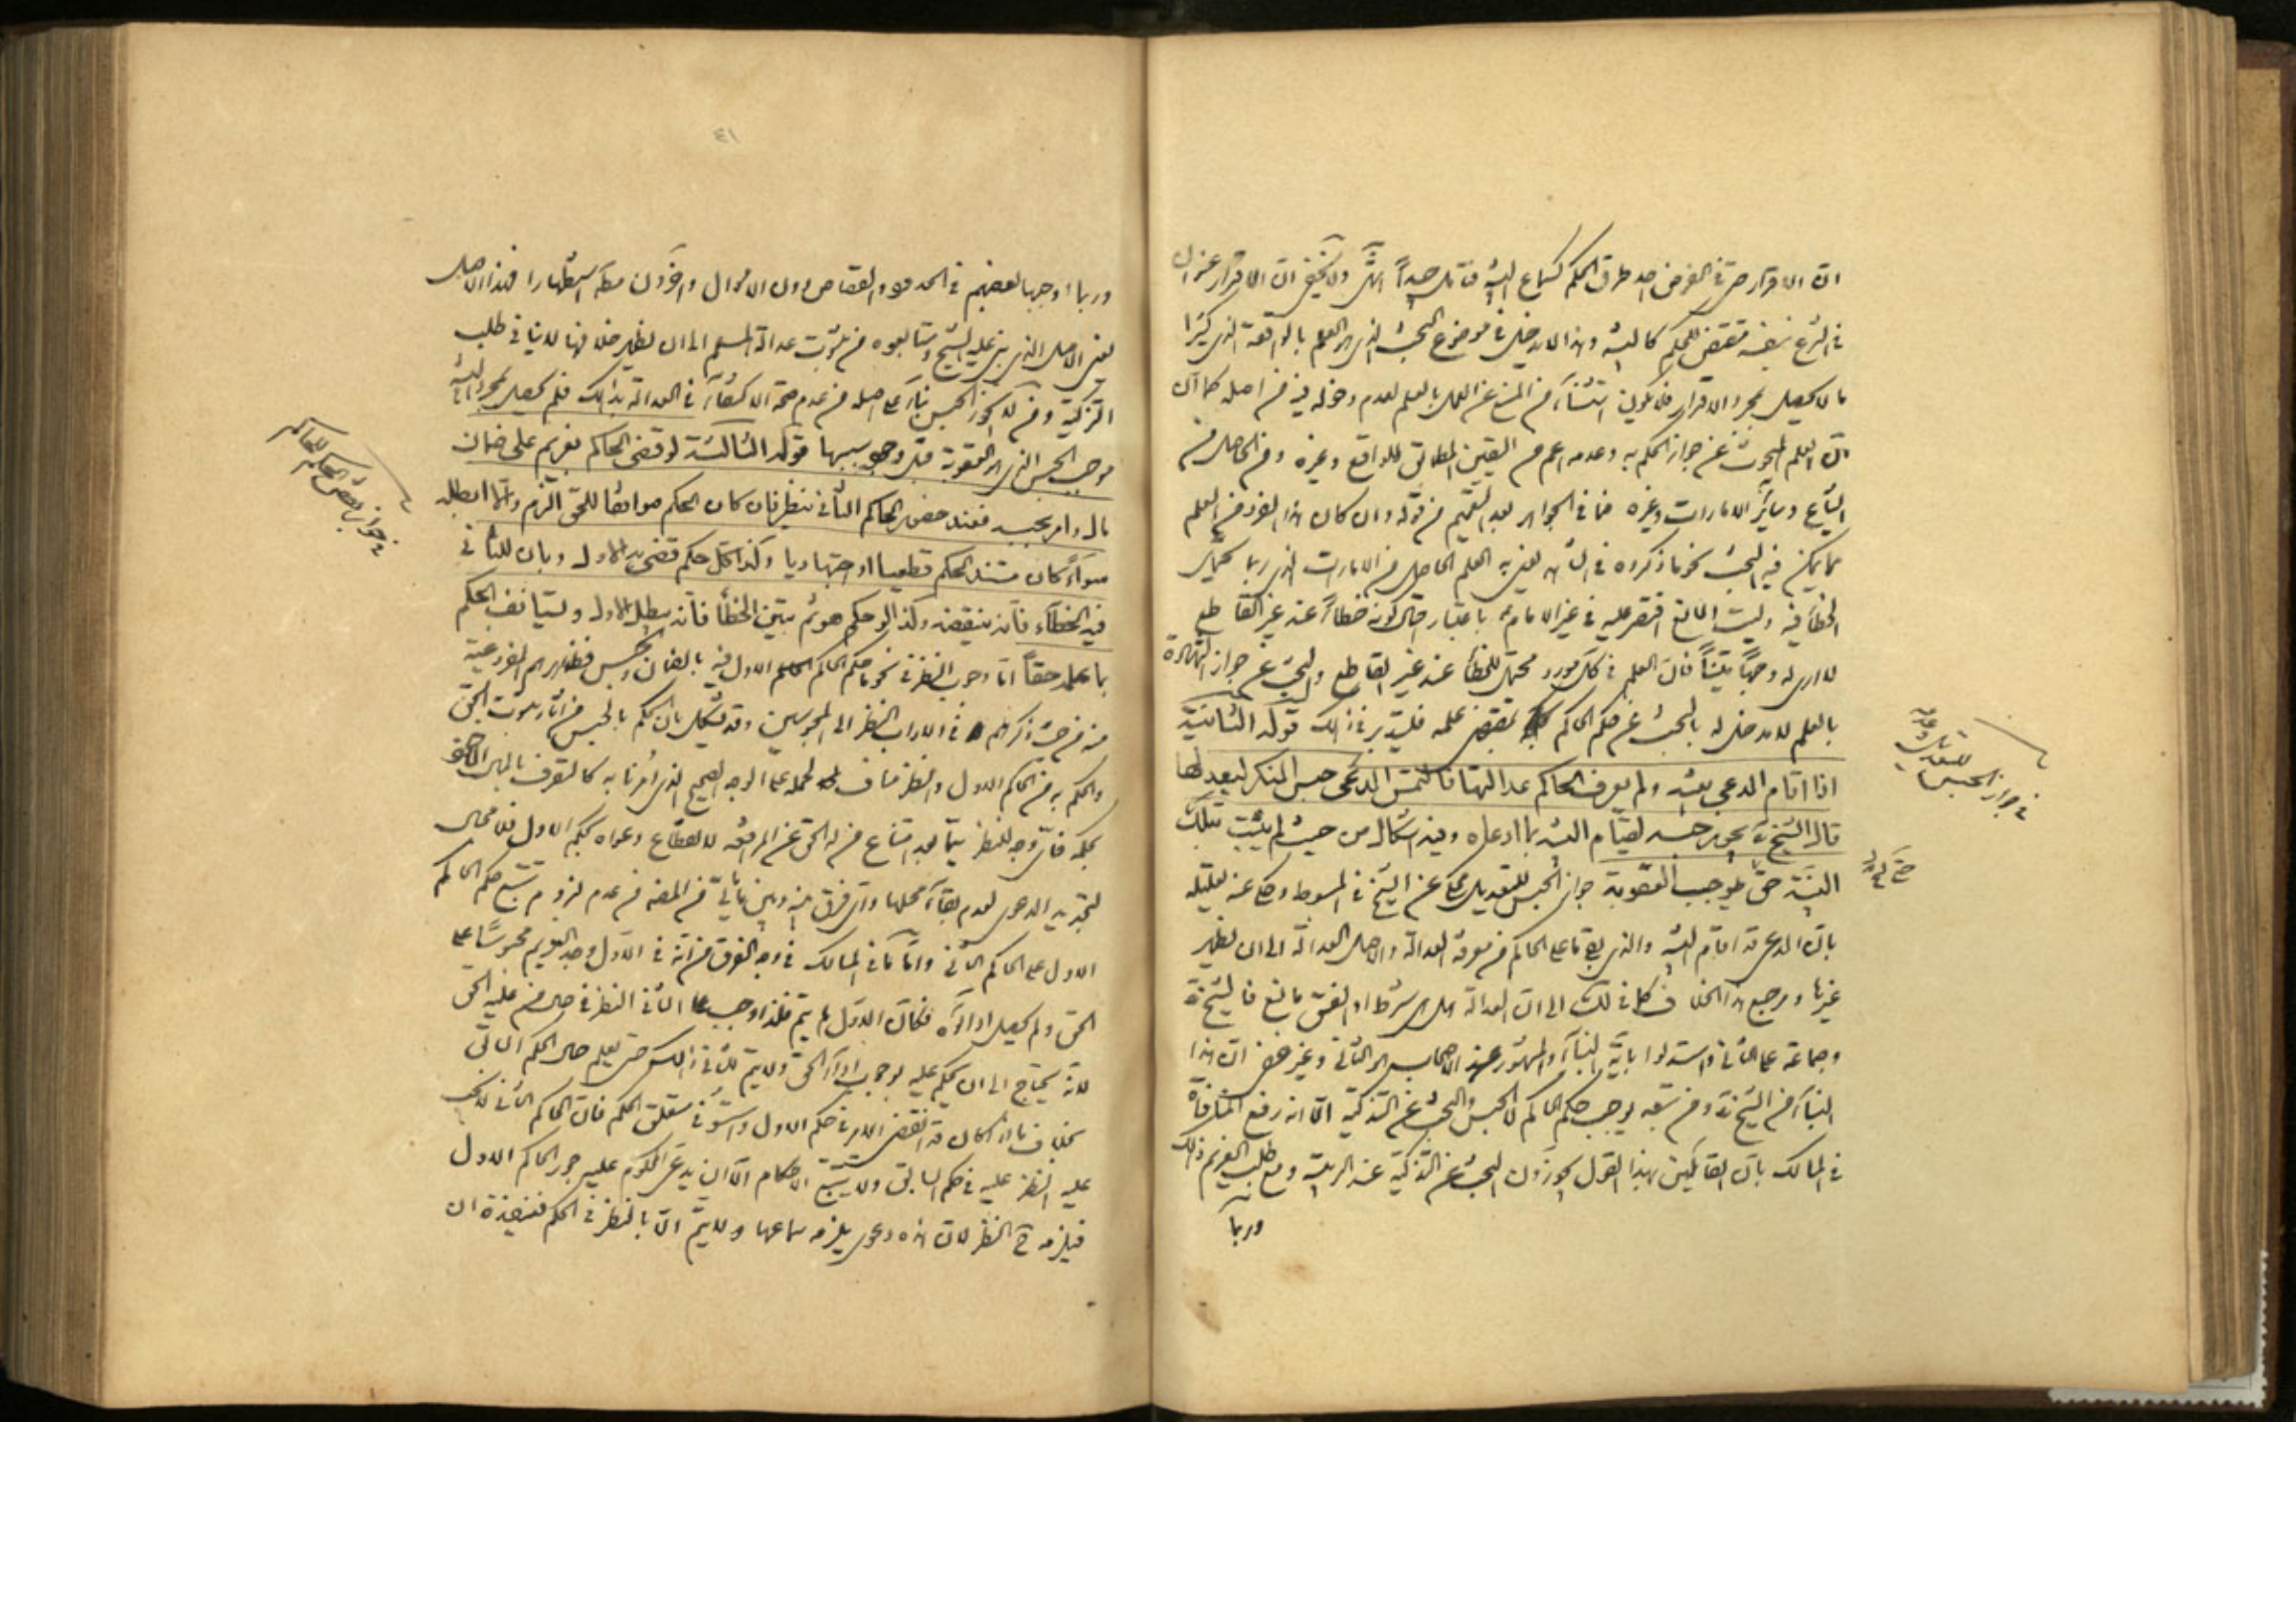 ان الاقرار حتى في الفرض احد طرق الحكم كسماع البينة فتامل جيداً انتهى ولا يخفى ان الاقرار عنوان
في الشرع بنفسه مقتض للحكم كالبينة وهذا لا يدخل في موضوع البحث الذى هو العلم بالواقعة الذى كثيرا
ما لا يحصل بمجرد الاقرار فلا يكون استثناء من المنع عن العمل بالعلم لعدم دخوله فيه من اصله كما ان
ان العلم المبحوث عن جواز الحكم به وعدمه اعم من اليقين المطابق للواقع وغيره ومن الحاصل من
السماع وسائر الامارات وغيره فما في الجواهر بعد التعميم من قوله وان كان هذا الفرد من العلم
مما يمكن فيه البحث نحو ما ذكروه في يعنى به العلم الحاصل من الامارات الذى ربما يحتمل
الخطأ فيه وليت المانع اقتصر عليه في غير الامام باعتبار احتمال كونه خطأً عند غير القاطع
لا ارى له وجهاً بيّناً فان العلم في كل مورد محتمل للخطأ عند غير القاطع والبحث عن جواز الشهادة
بالعلم لا دخل له بالبحث عن حكم الحاكم بمقتضى علمه فليتدبر في ذلك قوله الثانية
اذا اقام المدعى بينة ولم يعرف الحاكم عدالتها فالتمس المدعى حبس المنكر ليعدلها
قال الشيخ ره يجوز حبسه لقيام البينة بما ادعاه وفيه اشكال من حيث لم يثبت بتلك
البينة حق يوجب العقوبة جواز الحبس للتعديل محكى عن الشيخ في المبسوط وحكى عنه تعليله
بان المدعى قد اقام البينة والذى بقى ما على الحاكم من معرفة العدالة والاصل العدالة الى ان يظهر
غيرها ومرجع هذا الخلاف كما في لك الى ان العدالة هل هى شرط او الفسق مانع فالشيخ ره
وجماعة على الثانى واستدلوا باية النبأ والمشهور عند الاصحاب هو الثانى وغير خفى ان هذا
البناء من الشيخ ره ومن تبعه يوجب حكم الحاكم لا الحبس والبحث عن التزكية الا انه رفع المنافاة
في المسالك بان القائلين بهذا القول يجوزون البحث عن التزكية عند الريبة ومع طلب الغريم ذلك
وربما
في جواز الحبس
للتعديل وعدمه
وربما اوجبها بعضهم في الحدود والقصاص دون الاموال واخرون مطلقا استظهارا فهذا الاصل
يعنى الاصل الذى بنى عليه الشيخ ومتابعوه من ثبوت عدالة المسلم الى ان يظهر خلافها لا ينافى طلب
التزكية ومن لا يجوز الحبس بناء على اصله من عدم صحة الاكتفاء في العدالة بذلك فلم يحصل بمجرد البينة
موجب الحبس الذى هو العقوبة قبل وجوب سببها قوله الثالثة لو قضى الحاكم بغريم على ضمان
مال وامر بحبسه فعند حضور الحاكم الثانى ينظر فان كان الحكم موافقا للحق الزم والا ابطله
سواء كان مستند الحكم قطعيا او اجتهاديا وكذا كل حكم قضى به الاول وبان للثانى
فيه الخطاء فانه ينقضه وكذا لو حكم هو ثم تبين الخطأ فانه يبطل الاول ويستأنف الحكم
بما علمه حقاً اما وجوب النظر في نحو ما حكم الحاكم الاول فيه بالضمان والحبس فظاهرهم الفروغية
منه من حيث ذكرهم في الاداب النظر الى المحبوسين وقد يشكل بان الحكم بالحبس من اثار ثبوت الحق
والحكم به من الحاكم الاول والنظر مناف لحمله على الوجه الصحيح الذى امرنا به كالتصرف بالمال
بحكمه فاى وجه للنظر سيما بعد امتناع من له الحق عن المرافعة لانقطاع دعواه بحكم الاول فلا مجال
لتجديد الدعوى لعدم بقاء محلها واى فرق بينه وبين ما ياتى من المصنف من عدم لزوم تتبع حكم الحاكم
الاول على الحاكم الثانى واما ما في المسالك في وجه الفرق من انه في الاول وجد الغريم محبوسًا على
الحق ولم يحصل اداؤه فكان الاول لم يتم فلذا وجب على الثانى النظر في حال من عليه الحق
لانه يحتاج الى ان يحكم عليه بوجوب اداء الحق ولا يتم للثانى ذلك حتى يعلم حال الحكم السابق
بخلاف ما اذا كان قد انقضى الامر في حكم الاول واستوفى متعلق الحكم فان الحاكم الثانى لا يجب
عليه النظر عليه في حكم السابق ولا يتتبع الاحكام الا ان يدعى المحكوم عليه جور الحاكم الاول
فيلزمه ح النظر لان هذه دعوى يلزمه سماعها ولا يتم الا بالنظر في الحكم فتنفيذه ان
في جواز نقض الحكم للحاكم
٤١